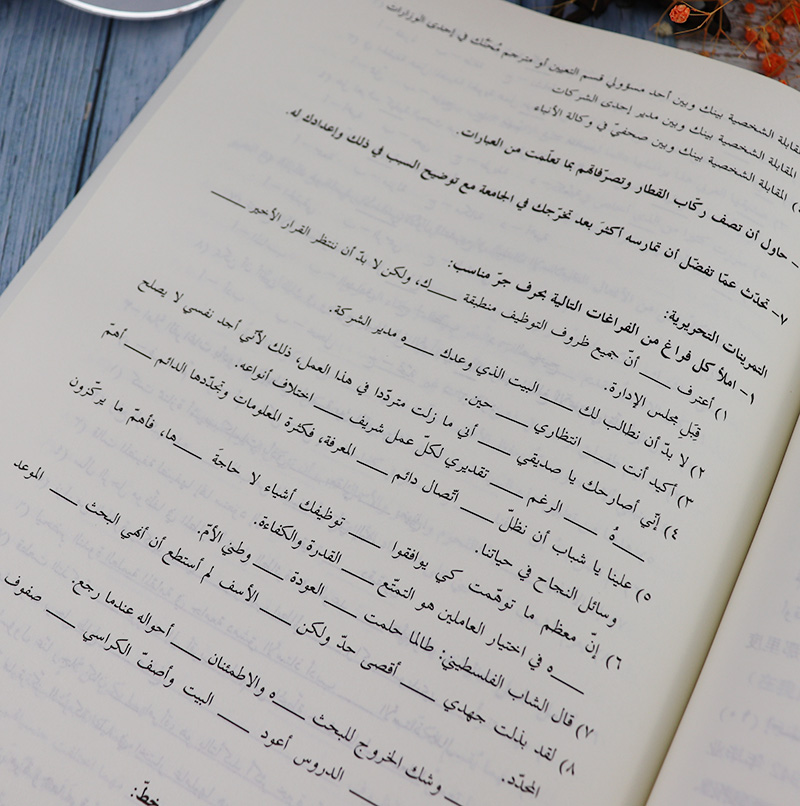 المقابلة الشخصية بينك وبين أحد مسؤولي قسم التعيين أو مترجم محنّك في إحدى الوزارات
المقابلة الشخصية بينك وبين مدير إحدى الشركات
المقابلة الشخصية بينك وبين صحفيّ في وكالة الأنباء
حاول أن تصف ركّاب القطار وتصرّفاتهم بما تعلّمت من العبارات.
٧- تحدّث عمّا تفضّل أن تمارسه أكثرَ بعد تخرّجك في الجامعة مع توضيح السبب في ذلك وإعدادك له.
التمرينات التحريرية:
١- املأ كل فراغ من الفراغات التالية بحرف جرّ مناسب:
١) أعترف ___ أنّ جميع ظروف التوظيف منطبقة ___ك، ولكن لا بدّ أن ننتظر القرار الأخير ___
قِبَلِ مجلس الإدارة.
٢) لا بدّ أن نطالب لك ___ البيت الذي وعدك ___ه مدير الشركة.
٣) أكيد أنت ___ انتظاري ___ حين.
٤) إنّي أصارحك يا صديقي ___ أني ما زلت متردّدا في هذا العمل، ذلك لأنّي أجد نفسي لا يصلح
___هُ ___ الرغم ___ تقديري لكلّ عمل شريف ___ اختلاف أنواعه.
٥) علينا يا شباب أن نظلّ ___ اتّصال دائم ___ المعرفة، فكثرة المعلومات وتجدّدها الدائم ___ أهمّ
وسائل النجاح في حياتنا.
٦) إنّ معظم ما توهّمت كي يوافقوا ___ توظيفك أشياء لا حاجةَ ___ها، فأهمّ ما يركّزون
___ه في اختيار العاملين هو التمتّع ___ القدرة والكفاءة.
٧) قال الشاب الفلسطيني: طالما حلمت ___ العودة ___ وطني الأمّ.
٨) لقد بذلت جهدي ___ أقصى حدّ ولكن ___ الأسف لم أستطع أن أنهي البحث ___ الموعد
المحدّد.
___ وشك الخروج للبحث ___ه والاطمئنان ___ أحواله عندما رجع.
___ الدروس أعود ___ البيت وأصفّ الكراسي ___ صفوف
خطّ: